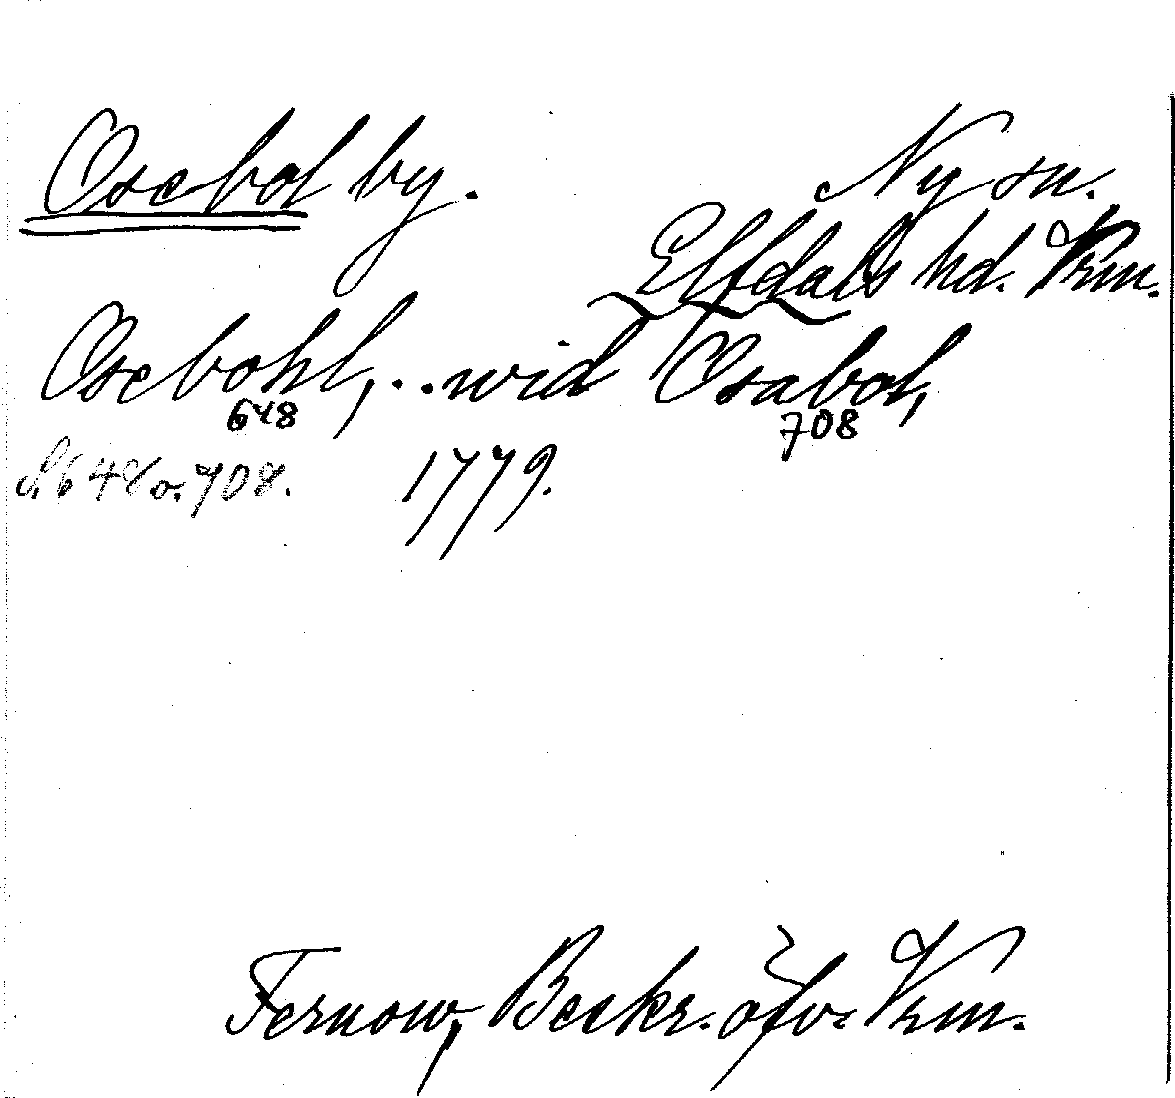 Osebol by. Ny sn.
Elfdals hd. Vrm.
Osebohl, .. wid Osabol,
648 708
S. 648 o. 708. 1779.
Fernow, Beskr. öfv. Vrm.